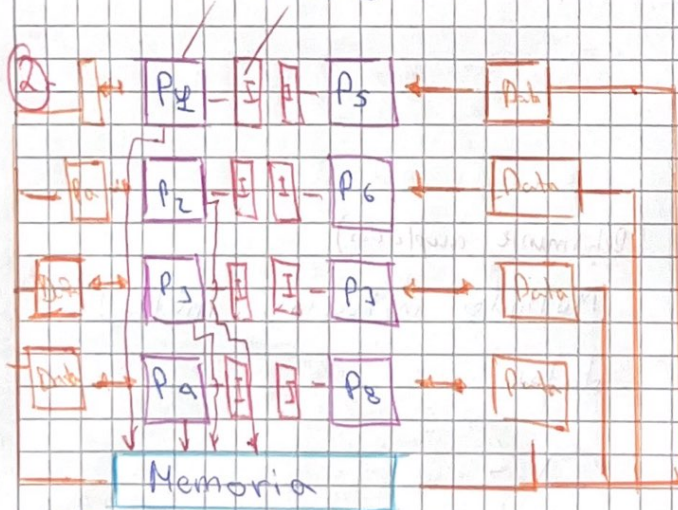 2
P1 I I P5 Dat
Da P2 I I P6 Data
Data P3 I I P7 Data
Data P4 I I P8 Data
Memoria